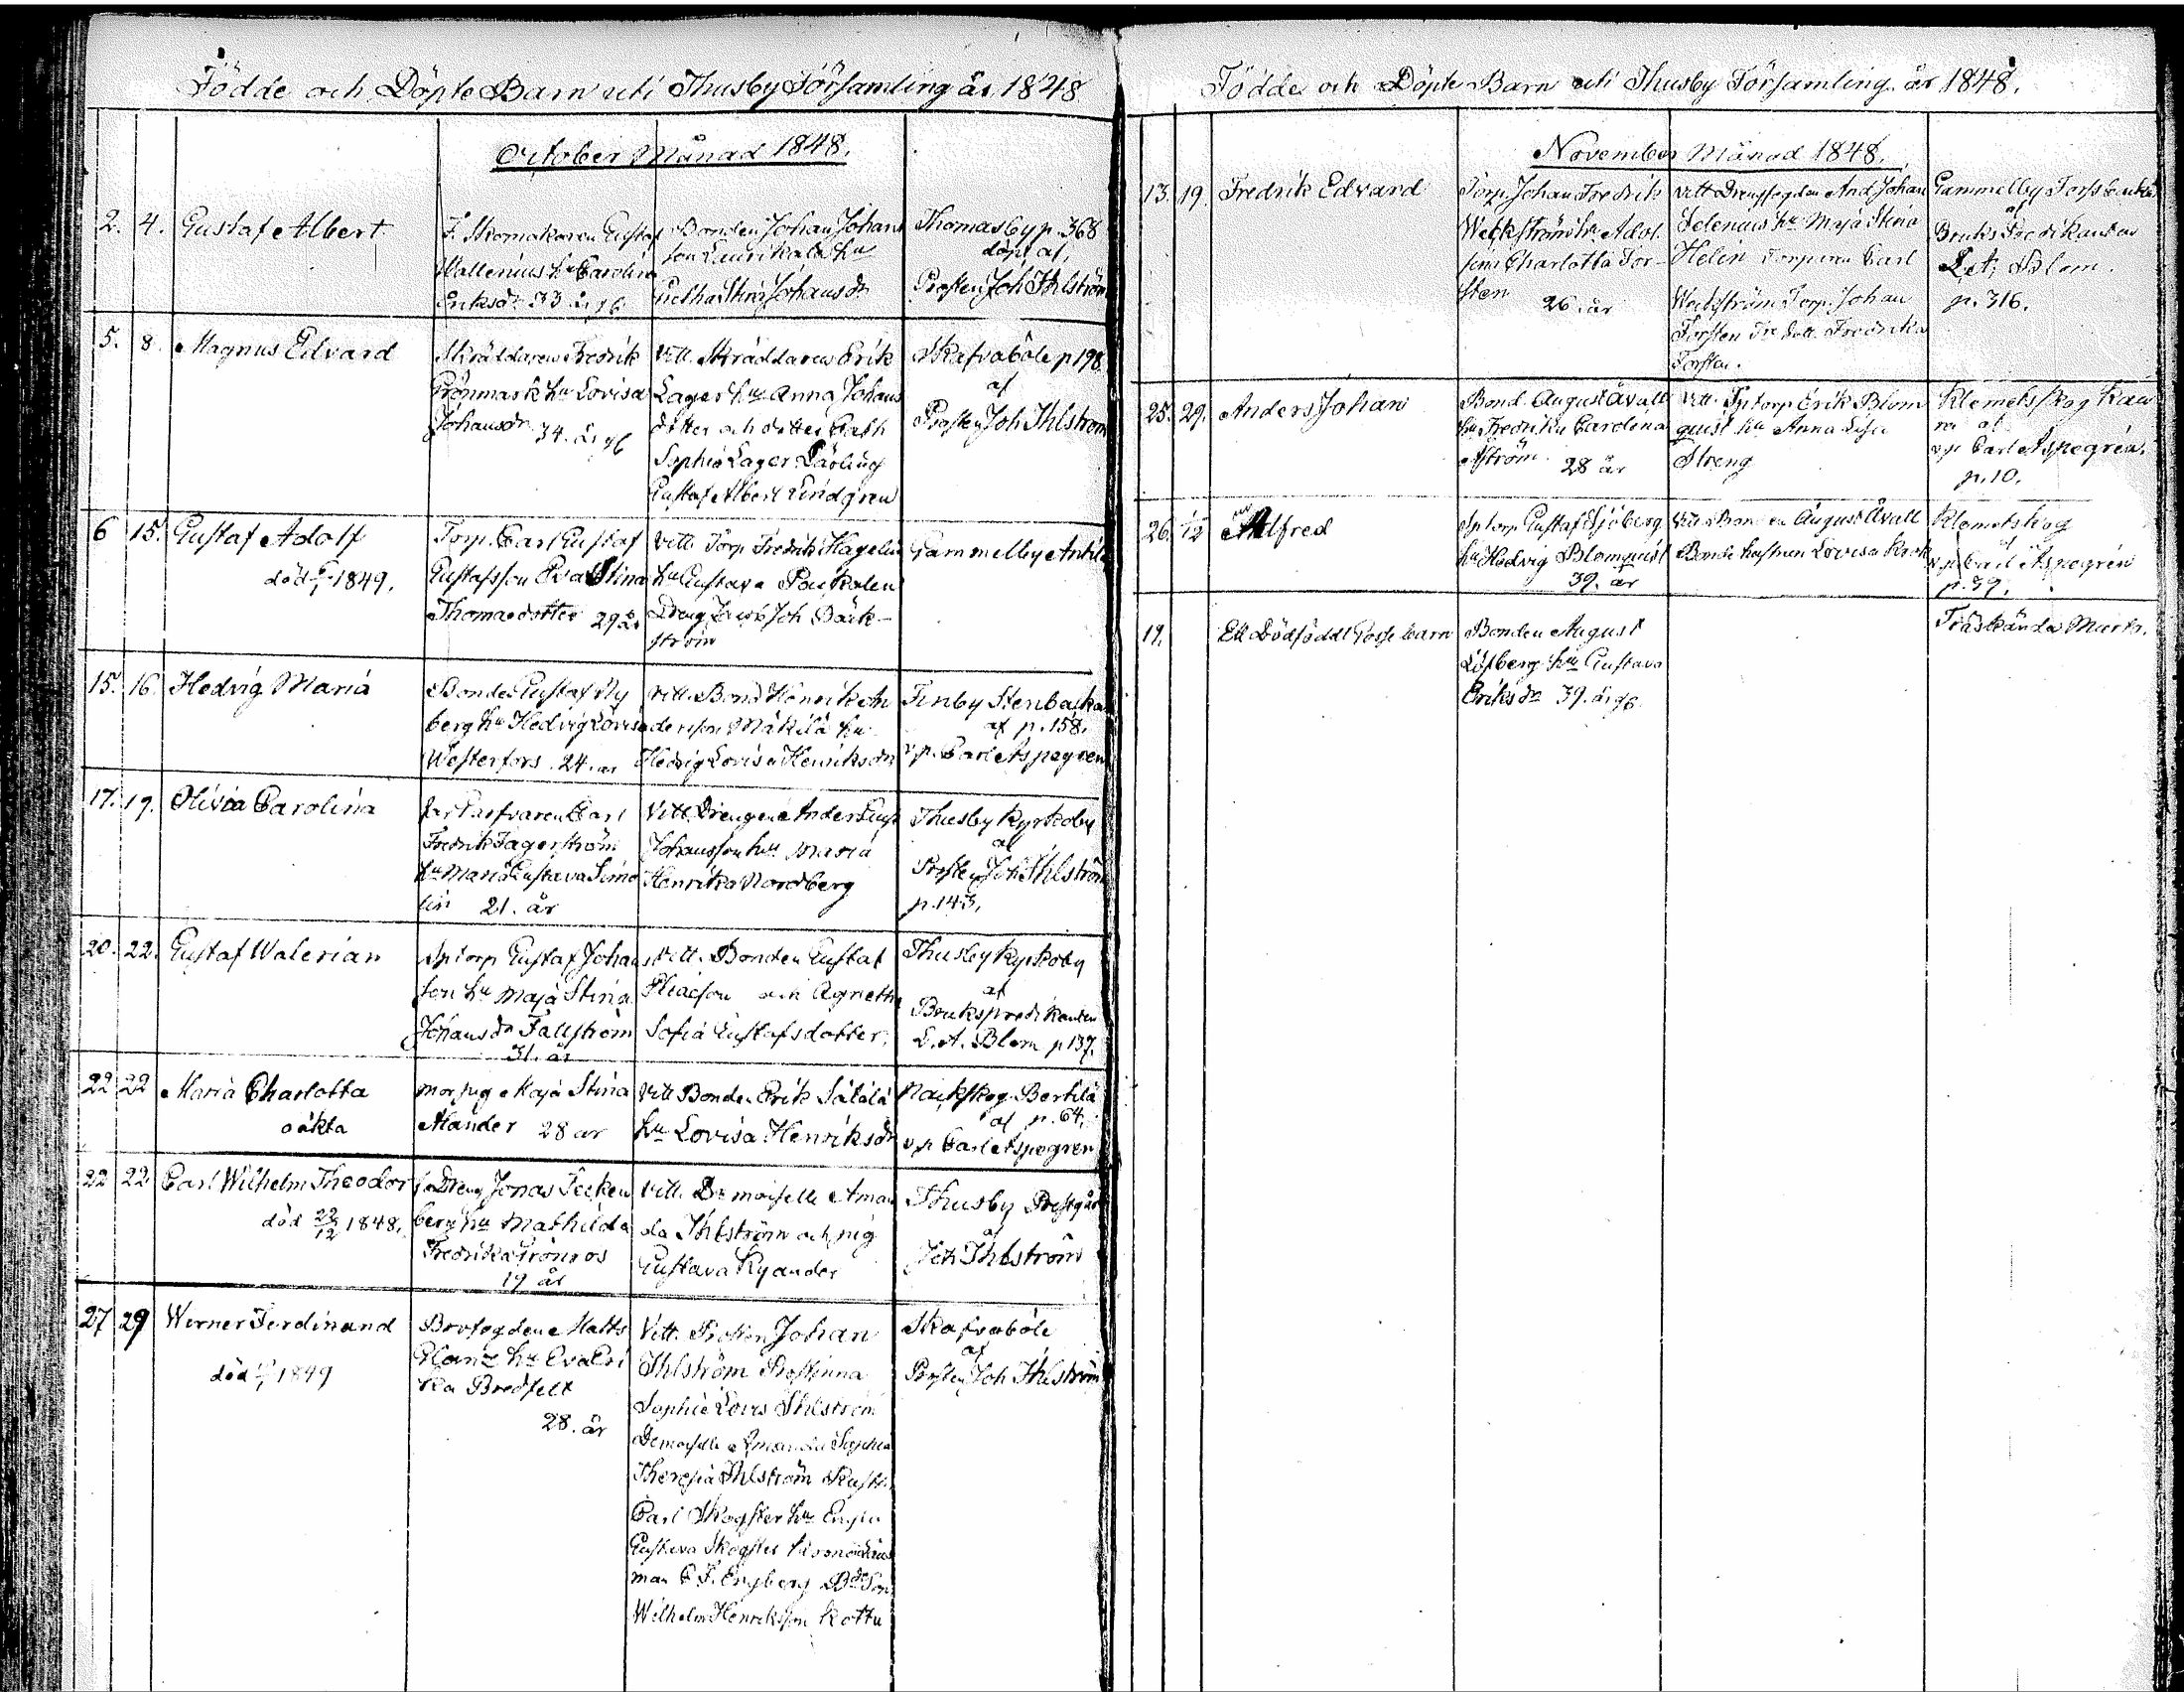 Födde och Döpte Barn uti Thusby Församling år 1848
October Månad 1848.
2. 4. Gustaf Albert
F. Skomakaren Gustaf
Wallenius hu Carolina
Eriksdr 33 år
Bonden Johan Johans
son Laurikala hu
Stina Johansdr
Thomasby p. 368
döpt af,
Prosten Joh Ihlström
5. 8. Magnus Edvard
Skräddaren Fredrik
Grönmark hu Lovisa
Johansdr 34. år
Vitt. Skräddaren Erik
Lager hu Anna Johans
dotter och dotter Cath
Sophia Lager Lärling
Gustaf Albert Lindgren
Skafvaböle p 198
af
Prosten Joh Ihlström
6 15. Gustaf Adolf
död 1849.
Torp. Carl Gustaf
Gustafsson Eva Stina
Thomasdotter 29 år
Vitt. Torp Fredrik Hagelin
hu Gustava
Dreng Joh Bäck-
ström
Gammelby Anttila
15. 16. Hedvig Maria
Bonden Gustaf Ny
berg hu Hedvig Lovisa
Westerfors. 24. år
Vitt. Bond Henrik An
dersson Mäkilä hu
Hedvig Lovisa Henriksdr
Finby Stenbacka
af p. 158.
v.p. Carl Aspegren
17. 19. Olivia Carolina
Carl
Fredrik Fagerström
hu Maria Gustava Simo
lin 21. år
Vitt. Drengen Anders Gust
Johansson hu Maria
Henrika Nordberg
Thusby Kyrkoby
af
Prosten Joh Ihlström
p. 143.
20. 22. Gustaf Walerian
Sptorp Gustaf Johans
son hu Maja Stina
Johansdr Fallström
31. år
Vitt. Bonden Gustaf
Eliasson och Agneth
Sofia Gustafsdotter.
Thusby Kyrkoby
af
Brukspredikanten
L. A. Blom p 137.
22 22 Maria Charlotta
oäkta
mor pig Maja Stina
Alander 28 år
Vitt Bonden Erik Sälälä
hu Lovisa Henriksdr
Nackskog Bertilä
af p. 64.
v.p Carl Aspegren
22 22 Carl Wilhelm Theodor
död 22/12 1848.
Dreng Jonas Tecken
berg hu Mathilda
Fredrika Grönroos
19 år
Vitt. Demoiselle Aman
da Ihlström och pig
Gustava Kyander
Thusby Prestgård
af
Joh Ihlström
27 29 Werner Ferdinand
död 1849
Brofogden Matts
Glanz hu Eva Eri
ka Bredfelt
28. år
Vitt. Prosten Johan
Ihlström Prostinna
Sophie Lovis Ihlström
Demoiselle Amanda Sophia
Theresia Ihlström
Carl Skogster hu
Gustava Skogster
man C F. Engberg
Wilhelm Henriksson Kottu
Skafvaböle
af
Prosten Joh Ihlström
Födde och Döpte Barn uti Thusby Församling år 1848.
November Månad 1848.
13. 19. Fredrik Edvard
Torp. Johan Fredrik
Weckström hu Adol
fina Charlotta For-
sten 26. år
Vitt Drengfogden And Johan
Selenius hu Maja Stina
Helin Torparen Carl
Weckström Torp. Johan
Forsten Fredrika
Forsten.
Gammelby Forsbacka
af
Brukspredikanten
L. A. Blom.
p. 316.
25. 29. Anders Johan
Bond. August Åvall
hu Fredrika Carolina
Åström. 28 år
Vitt. Sptorp Erik Blom
quist hu Anna Lisa
Streng
Klemetskog
af
v.p Carl Aspegren.
p. 10.
26. Alfred
Sptorp Gustaf Sjöberg
hu Hedvig Blomquist
39. år
Vitt Bonden August Åvall
Bonde hustrun Lovisa
Klemetskog
af
v.p Carl Aspegren
p. 39.
19. Ett Dödfödt Gosse barn
Bonden August
Löfberg hu Gustava
Eriksdr 39. år
Träskända